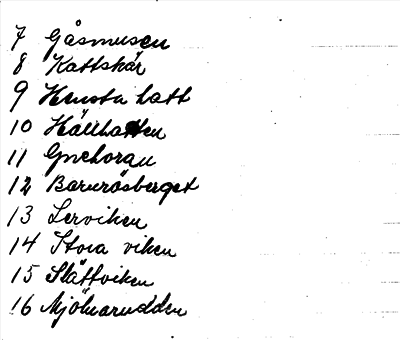 7 Gåsmusen
8 Kattskär
9 Hensta hatt
10 Hällhatten
11 Gnehorau
12 Barnrösberget
13 Lerviken
14 Stora viken
15 Slättviken
16 Mjölnarudden